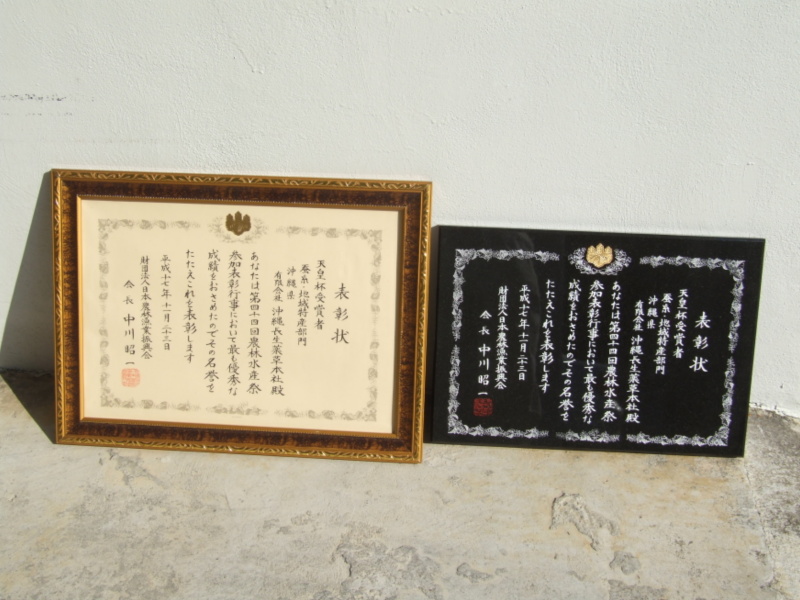 表彰状
天皇杯受賞者
蚕糸・地域特産部門
沖縄県
有限会社 沖縄長生薬草本社殿
あなたは第四十四回農林水産祭
参加表彰行事において最も優秀な
成績をおさめたのでその名誉を
たたえこれを表彰します
平成十七年十一月二十三日
財団法人日本農林漁業振興会
会長 中川昭一
表彰状
天皇杯受賞者
蚕糸・地域特産部門
沖縄県
有限会社 沖縄長生薬草本社殿
あなたは第四十四回農林水産祭
参加表彰行事において最も優秀な
成績をおさめたのでその名誉を
たたえこれを表彰します
平成十七年十一月二十三日
財団法人日本農林漁業振興会
会長 中川昭一